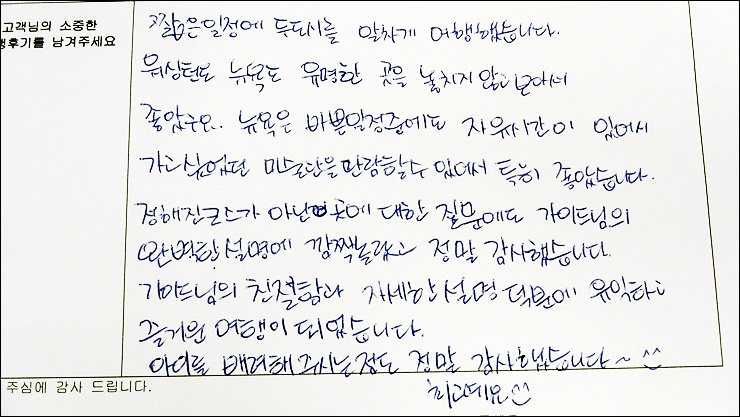 고객님의 소중한
행후기를 남겨주세요
짧은일정에 두도시를 알차게 여행했습니다.
워싱턴도 뉴욕도 유명한 곳을 놓치지 않고 보아서
좋았구요.. 뉴욕은 바쁜일정중에도 자유시간이 있어서
가고싶었던 미술관을 관람할수 있어서 특히 좋았습니다.
정해진코스가 아닌 곳에 대한 질문에도 가이드님의
완벽한 설명에 깜짝놀랐고 정말 감사했습니다.
가이드님의 친절함과 자세한 설명 덕분에 유익하고
즐거운 여행이 되었습니다.
아이를 배려해 주시는점도 정말 감사했습니다~ ^^
최고예요^^
주심에 감사 드립니다.